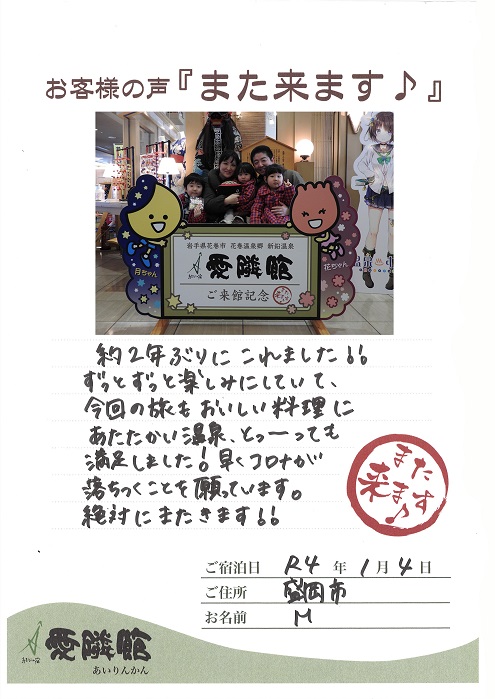 お客様の声『また来ます♪』
岩手県花巻市 花巻温泉郷 新鉛温泉
愛隣館
ご来館記念
月ちゃん
花ちゃん
約2年ぶりにこれました!!
ずっとずっと楽しみにしていて、
今回の旅もおいしい料理に
あたたかい温泉、とっーっても
満足しました!早くコロナが
落ちつくことを願っています。
絶対にまたきます!!
また
来ます♪
ご宿泊日 R4 年 1 月 4 日
ご住所 盛岡市
お名前 M
愛隣館
あいりんかん